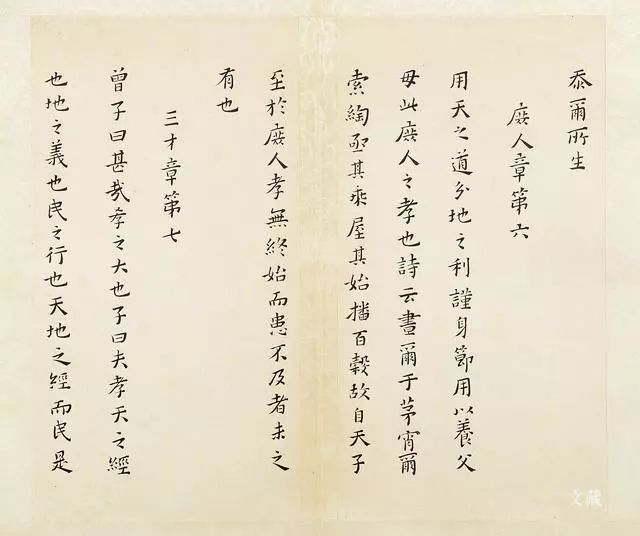 忝爾所生
庶人章第六
用天之道分地之利謹身節用以養父
母此庶人之孝也詩云晝爾于茅宵爾
索綯亟其乘屋其始播百穀故自天子
至於庶人孝無終始而患不及者未之
有也
三才章第七
曾子曰甚哉孝之大也子曰夫孝天之經
也地之義也民之行也天地之經而民是
文藏